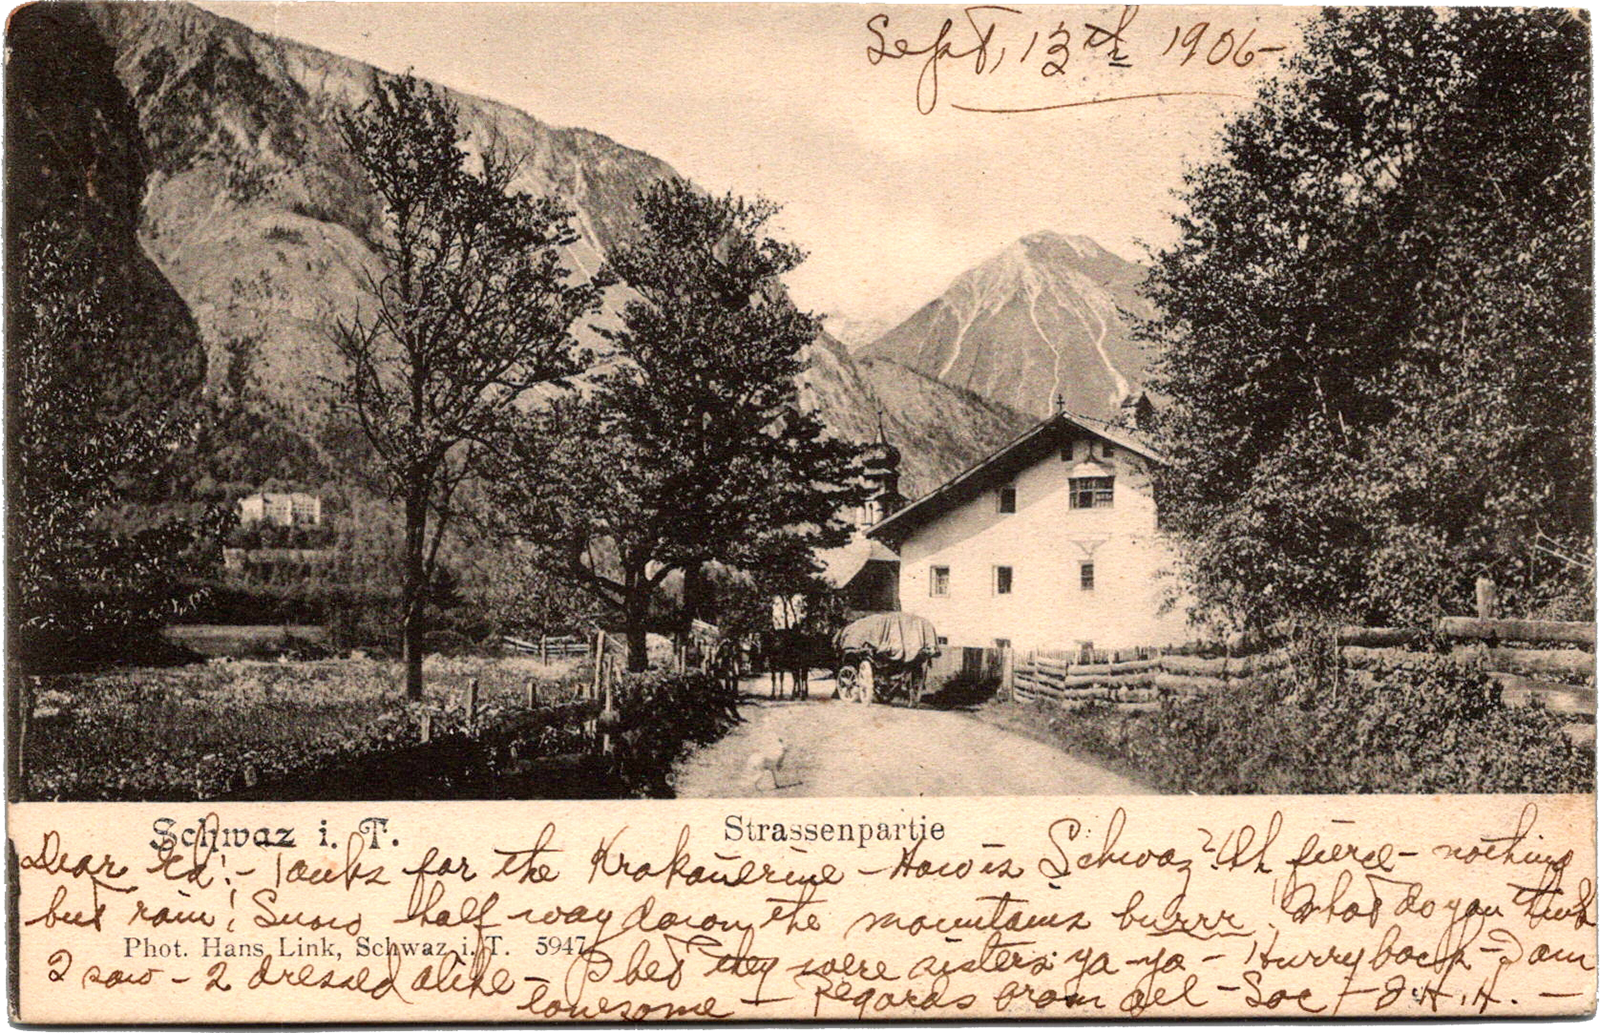 Sept, 13th 1906-
Schwaz i. T. Strassenpartie
Dear Ed! - Tanks for the Krakauerine - How is Schwaz? Oh fierce - nothing
but rain! Snow half way down the mountains burrr! What do you think
Phot. Hans Link, Schwaz i. T. 5947
I saw - 2 dressed alike - I bet they were sisters ya-ya - Hurry back - I am
lonesome - Regards from all -